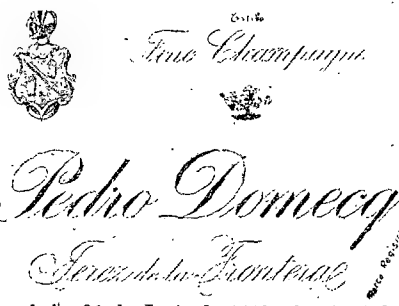 Estilo
Fino Champagne
Pedro Domecq
Jerez de la Frontera
Marca